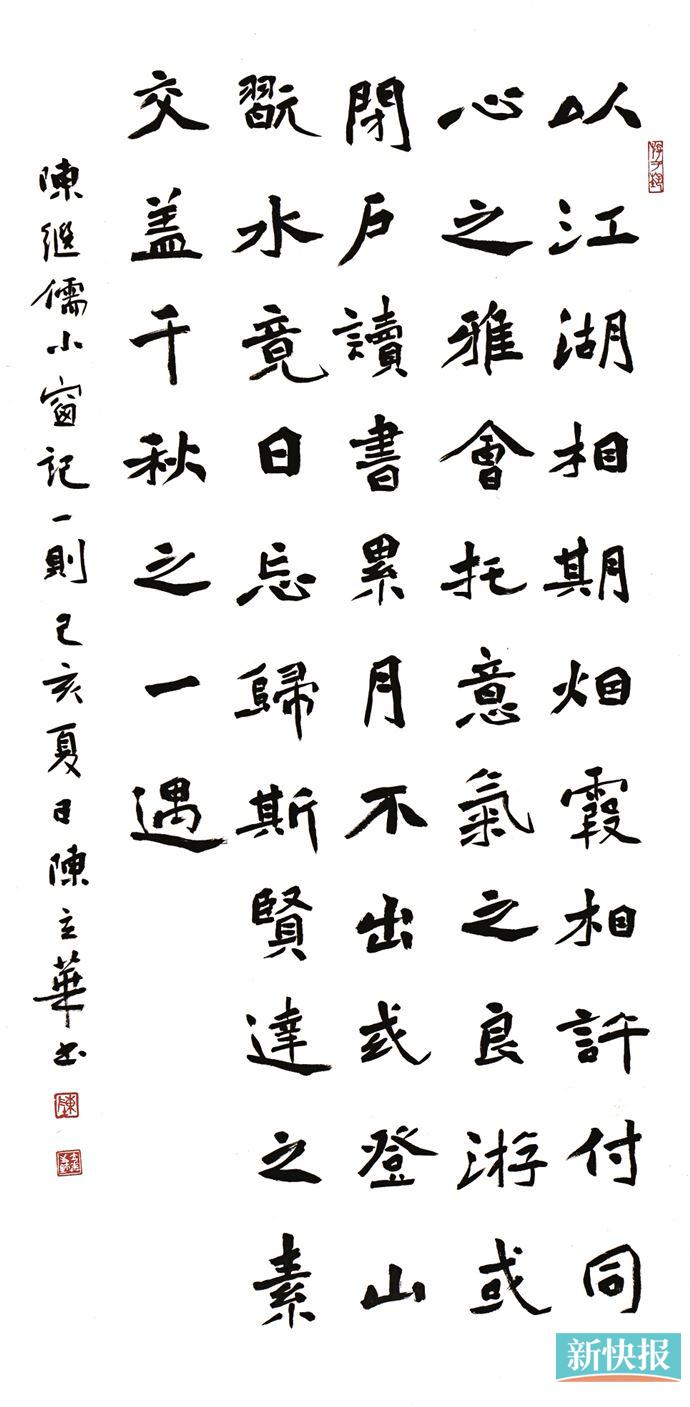 以江湖相期烟霞相許付同
心之雅會托意氣之良游或
閉户讀書累月不出或登山
翫水竟日忘歸斯賢達之素
交盖千秋之一遇
陳繼儒小窗記一則己亥夏日陳立華书
新快报